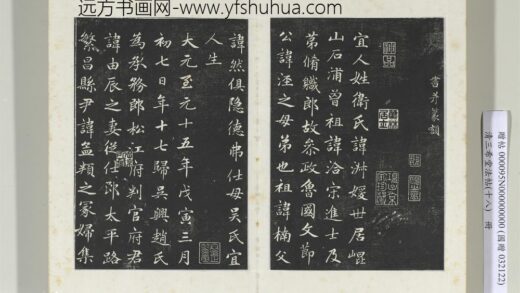 远方书画网- www.yfshuhua.com
書并篆額
宜人姓衛氏諱淑媛世居崐
山石浦曾祖諱洽宋進士及
第脩職郎故叅政魯國文節
公諱涇之母弟也祖諱楠父
諱然俱隐德弗仕母吳氏宜
人生
大元至元十五年戊寅三月
初七日年十七歸吳興趙氏
為承務郎松江府判官府君
諱由辰之妻從仕郎太平路
繁昌縣尹諱孟頪之冢婦集
贈帖 000095N000000000 (國贈 032122)
清三希堂法帖(十八) 冊